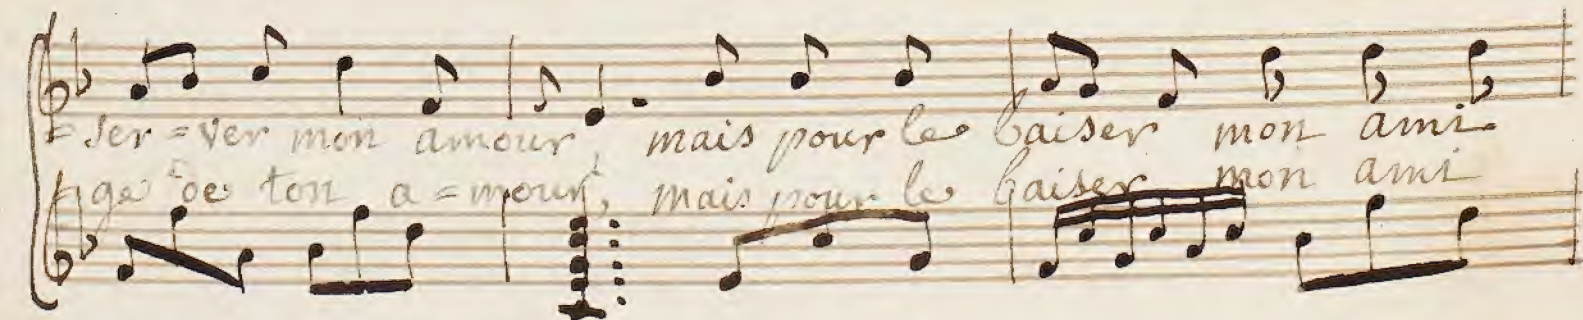 =ser=ver mon amour, mais pour le baiser mon ami
ge de ton a=mour, mais pour le baiser mon ami